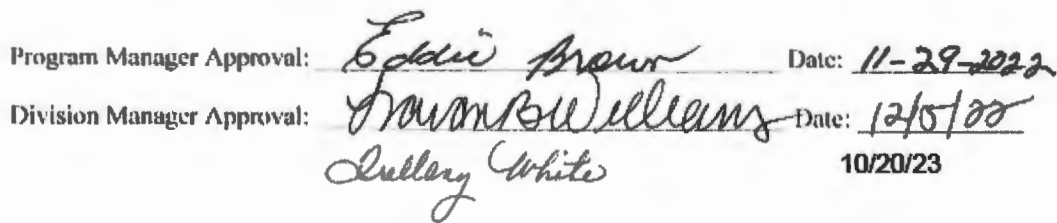 Program Manager Approval: Eddie Brown Date: 11-29-2022
Division Manager Approval: Williams Date: 12/5/22
White 10/20/23